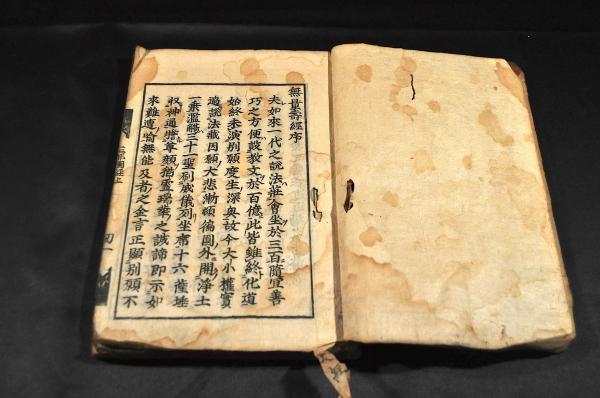 無量壽經序
夫如來一代之說法莊會坐於三百宣善
巧之方便設教文於百億此皆雖終化道
始終未演別願度生深奥故今大小權實
適說法藏因願大悲漸願徧圓外開淨土
一乘濫觴三十一聖列威儀列坐席十六薩埵
収神通尊顏猶靈瑞華之誠諦即示如
來難遭喻無能及者之金言正顯別願不